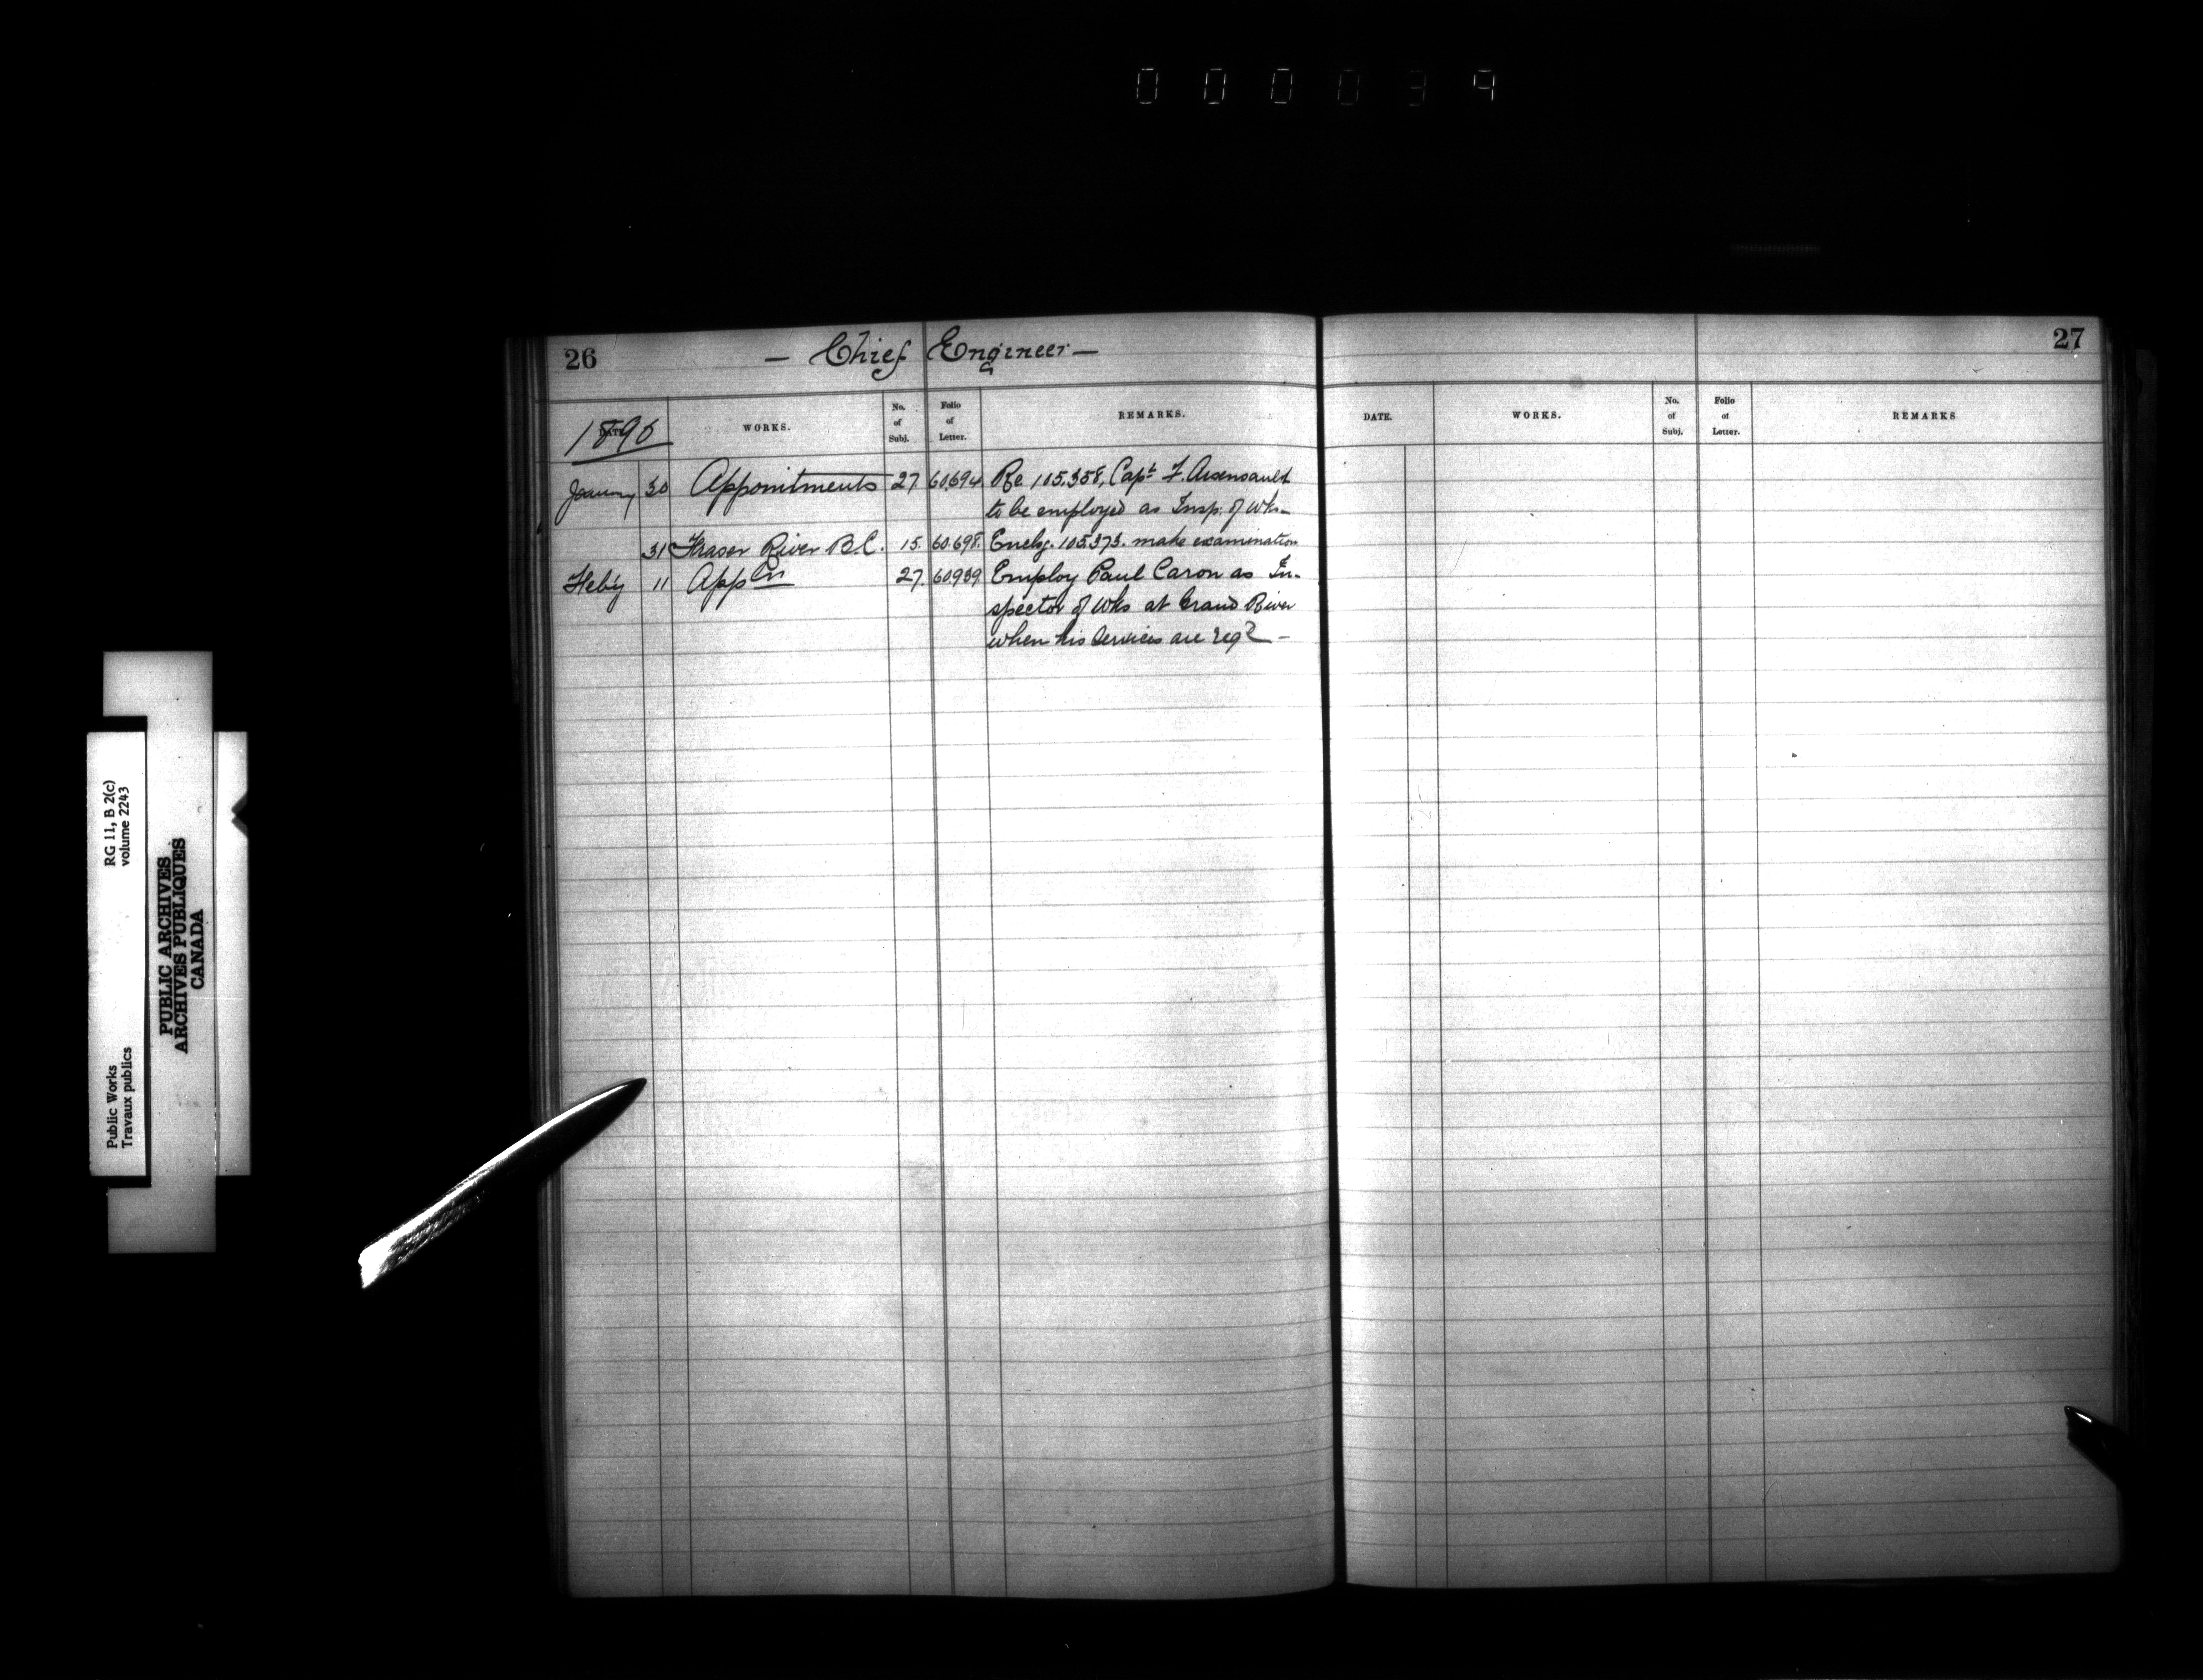 000039
26
— Chief Engineer —
27
1890
DATE. WORKS. No. of Subj. Folio of Letter. REMARKS.
DATE. WORKS. No. of Subj. Folio of Letter. REMARKS
January 30 Appointments 27 60,694 Re 105.358, Capt F. Arsenault
to be employed as Insp. of Wks—
31 Fraser River B.C. 15. 60.698. Enclg. 105.373. make examination
Feby 11 Appln 27. 60939 Employ Paul Caron as In-
spector of Wks at Grand River
when his services are reqd —
RG 11, B 2(c)
volume 2243
Public Works
Travaux publics
PUBLIC ARCHIVES
ARCHIVES PUBLIQUES
CANADA